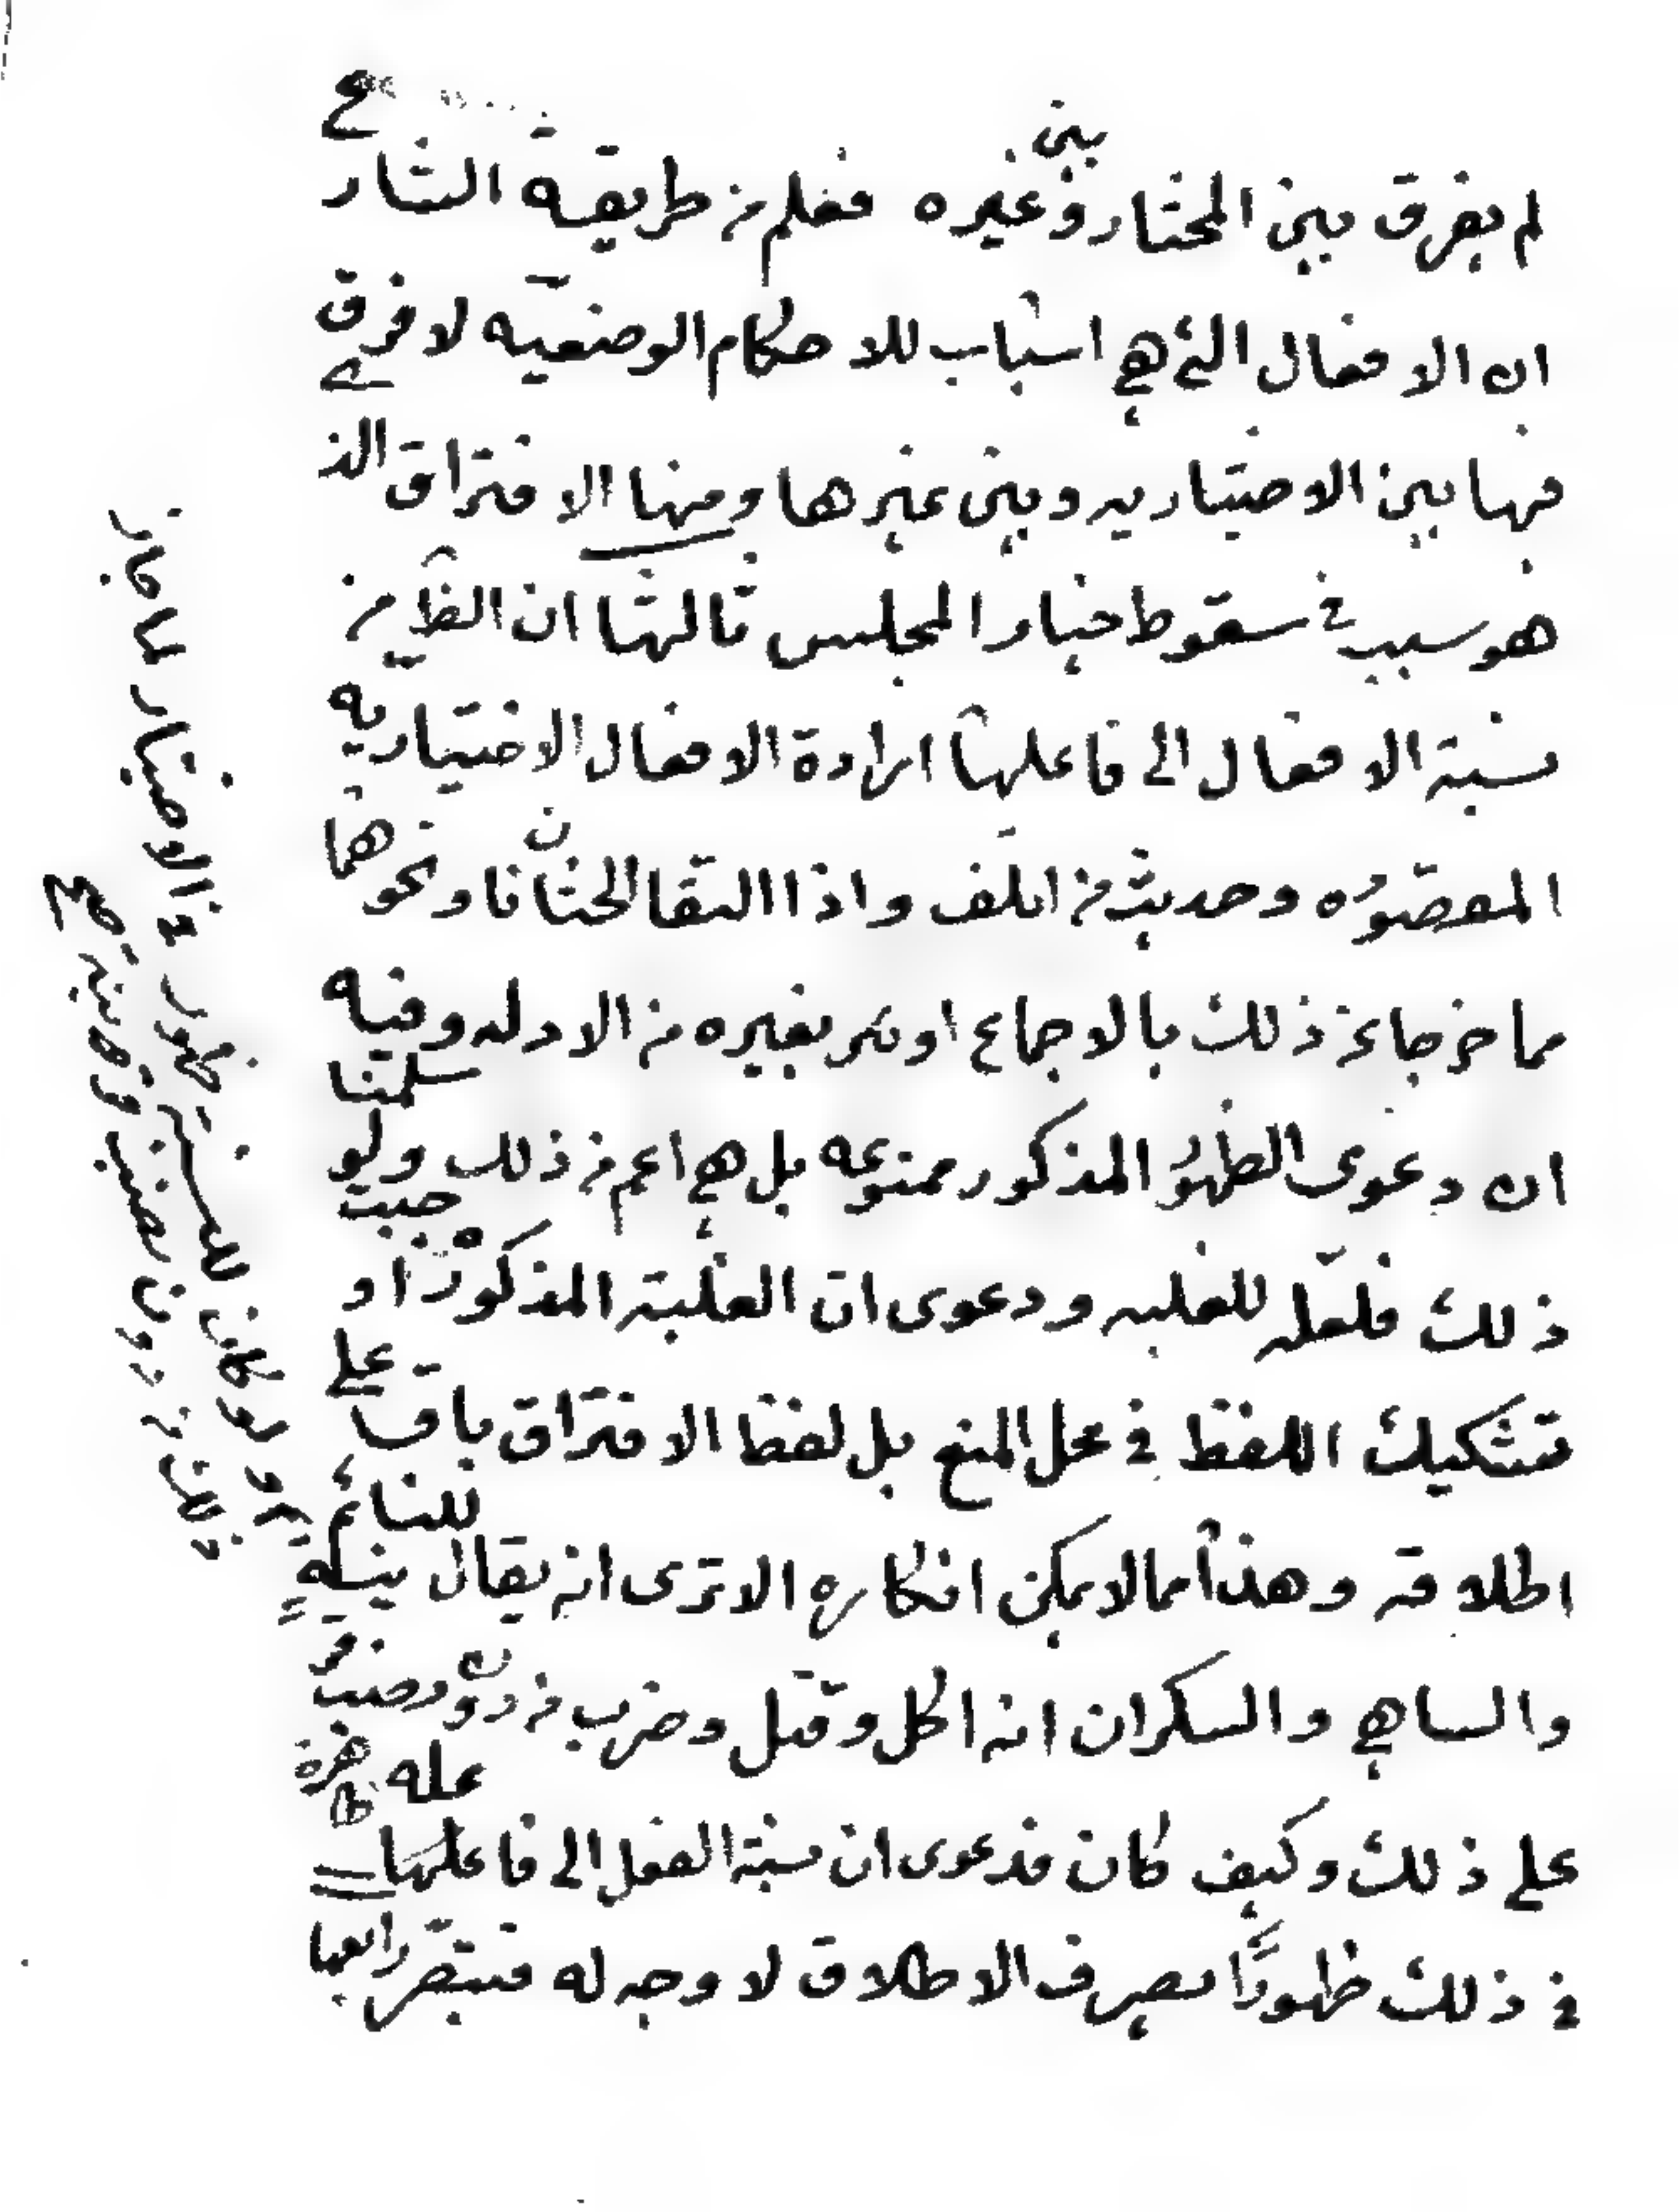 لم يفرق بين المختار وبين غيره فعلم من طريقة الشارع
ان الافعال التي هي اسباب للاحكام الوضعيه لا فرق
فيها بين الاختياريه وبين غيرها ومنها الافتراق الذي
هو سبب في سقوط خيار المجلس ثالثها ان الظ من
نسبة الافعال الى فاعلها ارادة الافعال الاختياريه
المقصوره وحديث من اتلف واذا التقا الختانان ونحوهما
مما خرجا عن ذلك بالاجماع او بغيره من الادله وفيه
ان دعوى الظهور المذكور ممنوعه بل هي اعم من ذلك ولو سلمنا
ذلك فلعله للغلبه ودعوى ان الغلبة المذكوره اوجبت
تشكيك اللفظ في محل المنع بل لفظ الافتراق باق على
اطلاقه وهذا مما لا يمكن انكاره الا ترى انه يقال للنائم
والساهي والسكران انه اكل وقتل وضرب من دون نصب قرينة
على ذلك وكيف كان فدعوى ان نسبة الفعل الى فاعلها ظاهرة
في ذلك ظهورًا يصرف الاطلاق لا وجه له فتبقر رابعها
ولو كان للفعل ظهور في الاختيار لما جاز
ذلك من دون نصب قرينة صح